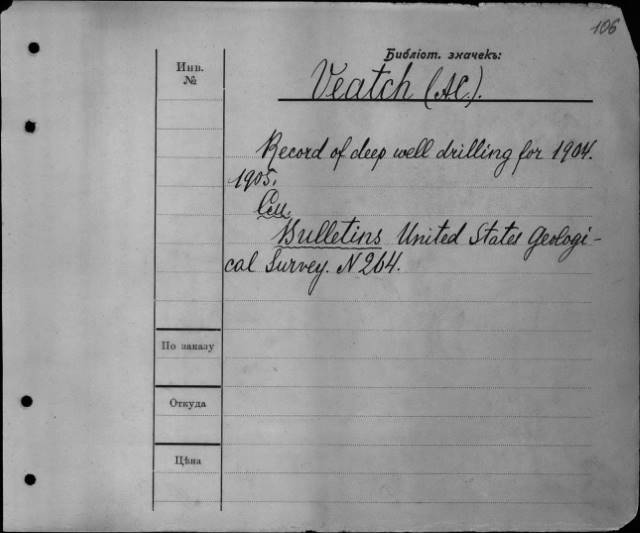 106
Библіот. значекъ:
Инв.
№
Veatch (A.C.).
Record of deep well drilling for 1904.
1905.
См.
Bulletins United States Geologi-
cal Survey. N 264.
По заказу
Откуда
Цѣна